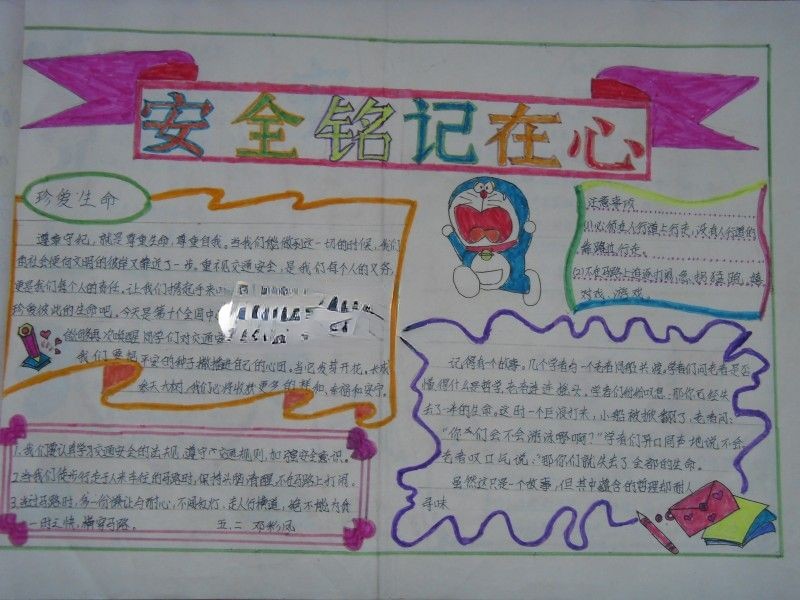 安全铭记在心
珍爱生命
遵章守纪，就是尊重生命，尊重自我。当我们能做到这一切的时候，我们
的社会便向文明的彼岸又靠近了一步。重视交通安全，是我们每个人的义务，
更是我们每个人的责任。让我们携起手来
珍爱彼此的生命吧，今天是第十个全国中
能够再次唤醒同学们对交通安
我们要把平安的种子撒播进自己的心田。当它发芽开花、长成
参天大树，我们必将收获更多的祥和、幸福和安宁。
1.我们要认真学习交通安全的法规，遵守交通规则，加强安全意识。
2.当我们徒步行走于人来车往的马路时，保持头脑清醒，不在马路上打闹。
3.走过马路时，多一份谦让与耐心，不闯红灯，走人行横道，绝不能为贪
一时之快，横穿马路。 五.二 邓彩凤
注意事项
(1)必须在人行道上行走，没有人行道的
靠路边行走。
(2)不在马路上追逐打闹
对戏、游戏。
记得有个故事。几个学者与一个老者同船共渡。学者们问老者是否
懂得什么是哲学，老者连连摇头。学者们纷纷叹息：那你已经失
去了一半的生命。这时一个巨浪打来，小船被掀翻了，老者问：
“你们会不会游泳啊啊？”学者们异口同声地说不会。
老者叹口气说：“那你们就失去了全部的生命。
虽然这只是一个故事，但其中蕴含的哲理却耐人
寻味